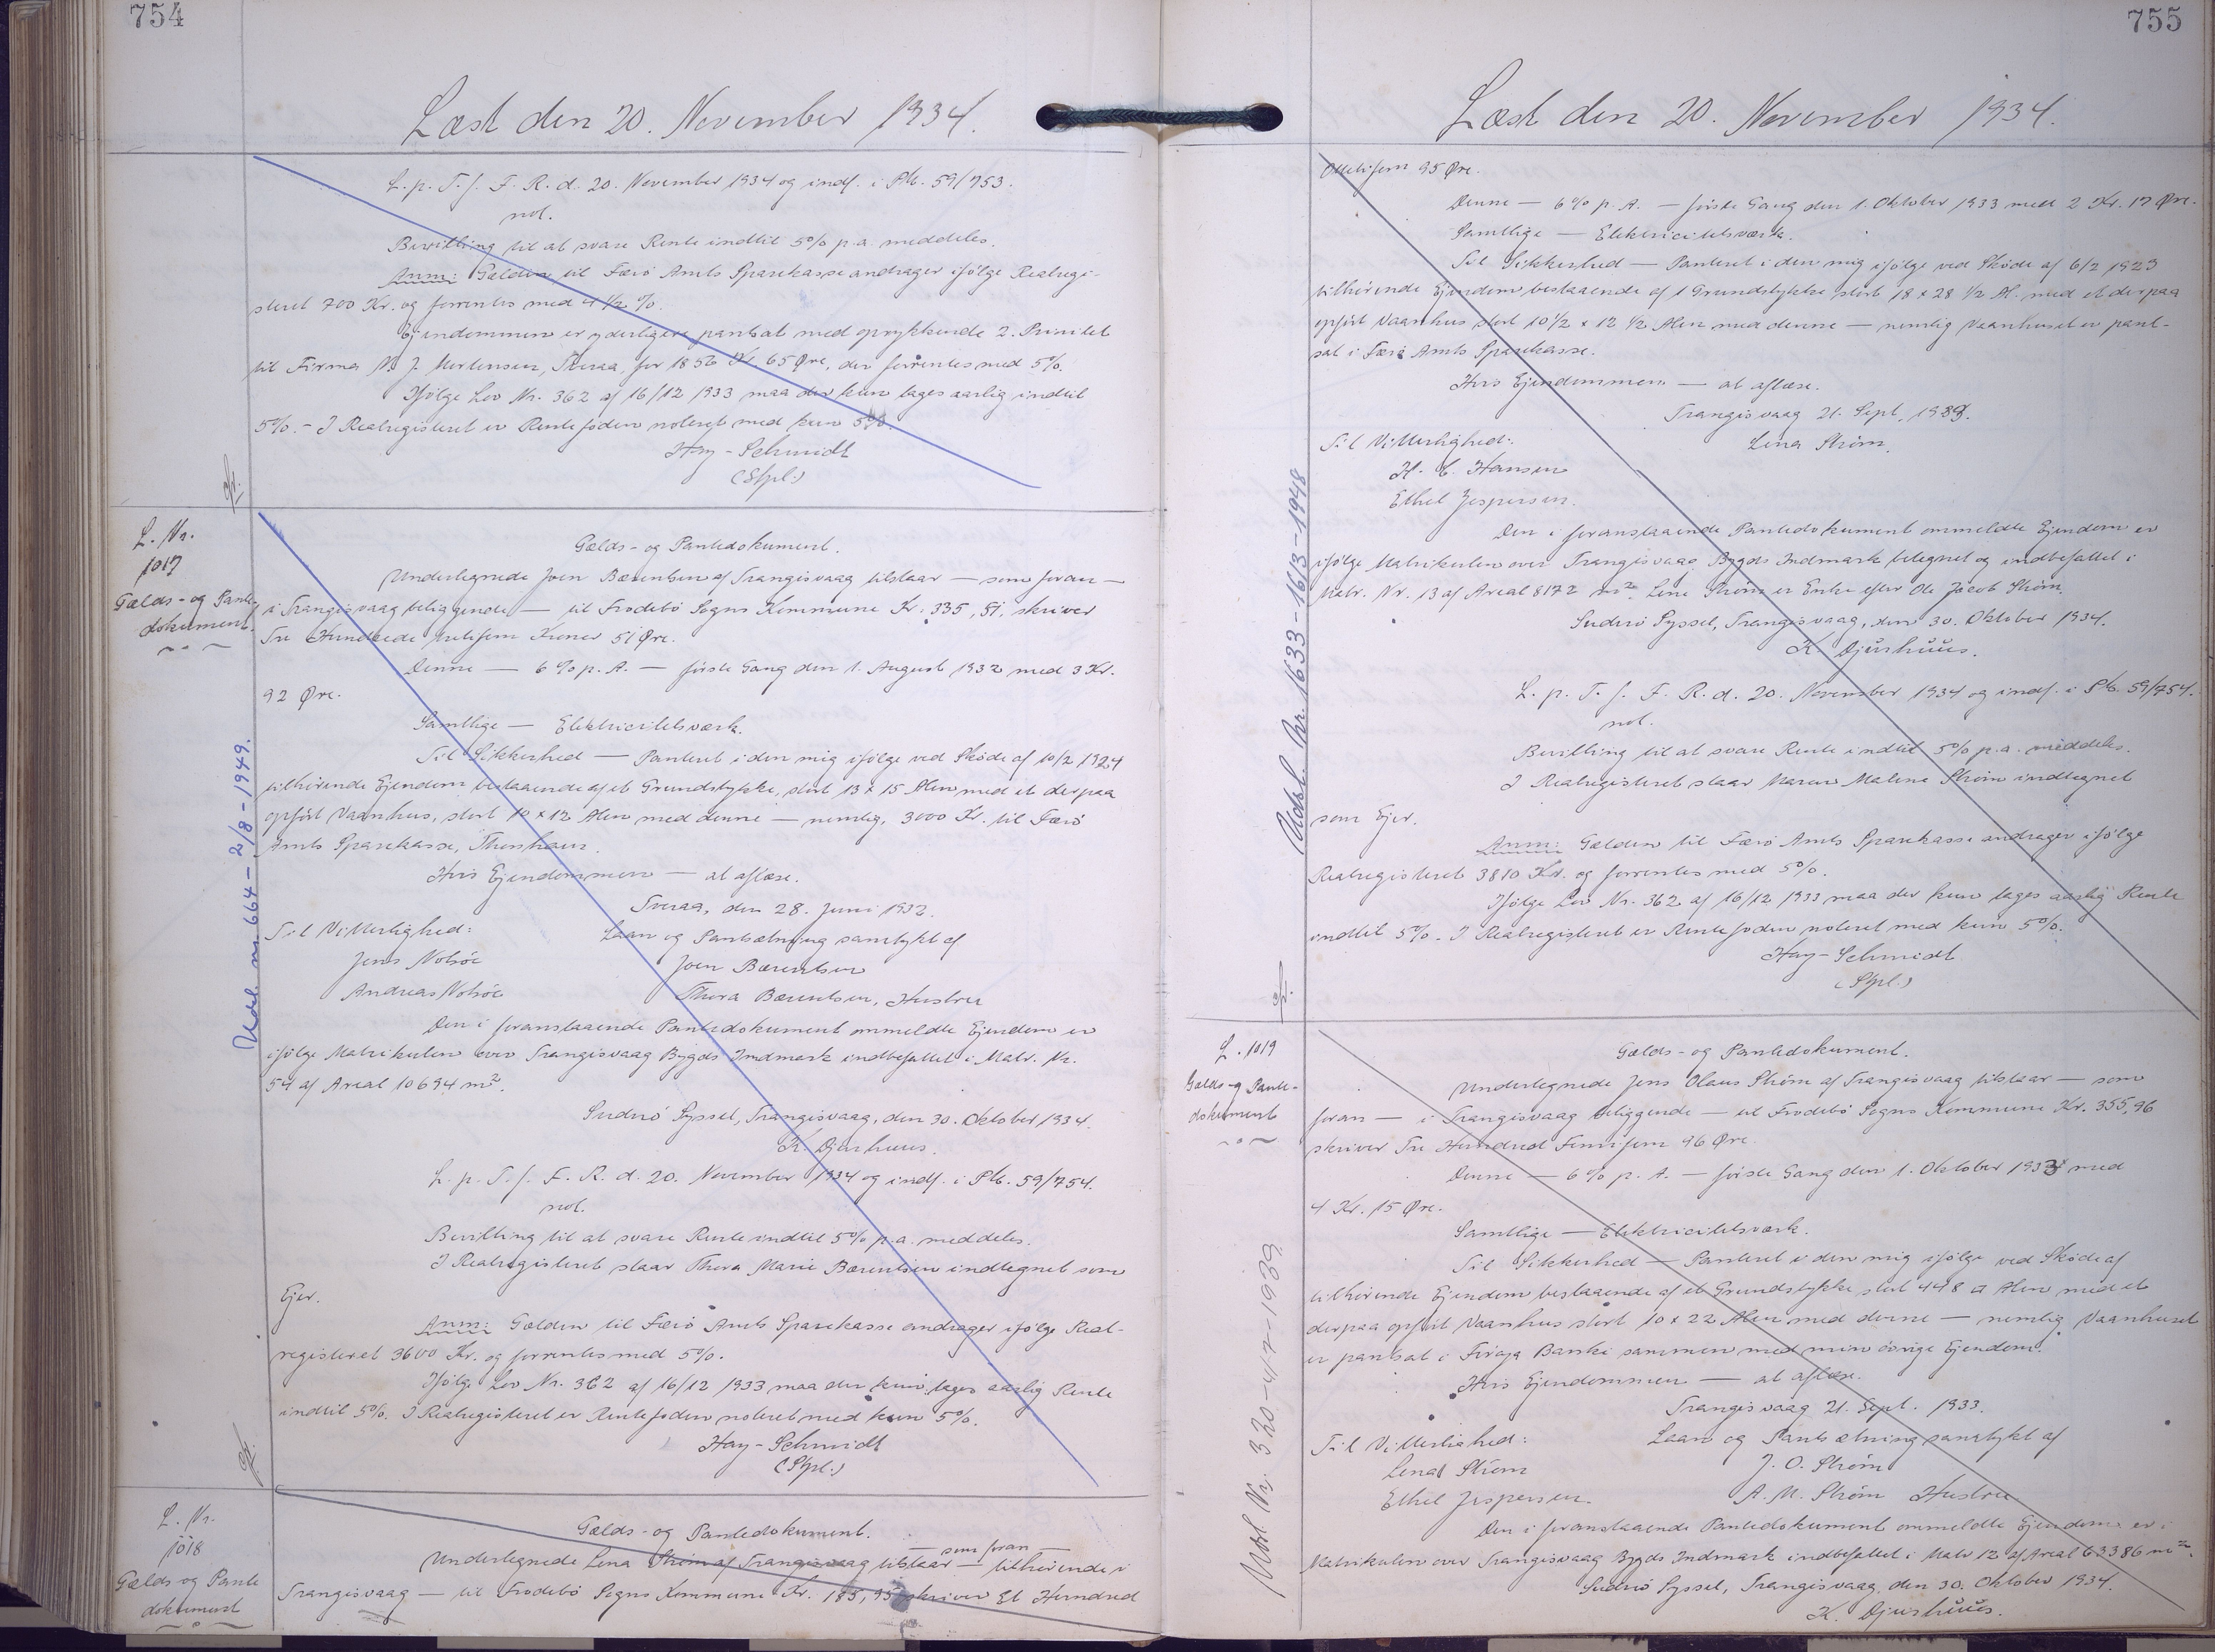 754
Læst den 20. November 1934.
L. p. T. f. F. R. d. 20. November 1934 og indf. i Ptb. 59/753.
not.
Bevilling til at svare Rente indtil 5% p.a. meddeles.
Anm: Gælden til Færö Amts Sparekasse andrager ifölge Realregi-
steret 700 Kr. og forrentes med 4 1/2 %.
Ejendommen er yderligere pantsat med oprykkende 2. Prioritet
til Firma N. J. Mortensen, Tveraa, for 1856 Kr. 65 Øre, der forrentes med 5%.
Ifölge Lov Nr. 362 af 16/12 1933 maa der kun tages aarlig indtil
5%. - I Realregisteret er Rentefoden noteret med kun 5%.
Hay-Schmidt
L. Nr.
1017
Gælds- og Pante-
dokument.
Gælds- og Pantedokument.
Undertegnede Joen Bærentsen af Trangisvaag tilstaar — som foran —
i Trangisvaag beliggende — til Frodebö Sogns Kommune Kr. 335,51, skriver
Tre Hundrede Kroner 51 Øre.
Denne — 6% p. A. — förste Gang den 1. August 1932 med 3 Kr.
92 Øre.
Samtlige — Elektricitetsværk.
Til Sikkerhed — Panteret i den mig ifölge ved Sköde af 10/2 1924
tilhörende Ejendom bestaaende af et Grundstykke, stort 13 x 15 Alen med et derpaa
opfört Vaanhus, stort 10 x 12 Alen med denne — nemlig, 3000 Kr. til Færö
Amts Sparekasse, Thorshavn.
Hvis Ejendommen — at aflæse.
Tveraa, den 28. Juni 1932.
Til Vitterlighed: Laan og Pantsætning samtykt af
Jens Nolsöe Joen Bærentsen
Andreas Nolsöe Thora Bærentsen, Hustru
Den i foranstaaende Pantedokument ommeldte Ejendom er
ifölge Matrikulen over Trangisvaag Bygds Indmark indbefattet i Matr. Nr.
54 af Areal 10694 m².
Suderö Syssel, Trangisvaag, den 30. Oktober 1934.
K. Djurhuus.
L. p. T. f. F. R. d. 20. November 1934 og indf. i Ptb. 59/754.
not.
Bevilling til at svare Rente indtil 5% p.a. meddeles.
I Realregisteret staar Thora Marie Bærentsen indtegnet som
Ejer.
Anm: Gælden til Færö Amts Sparekasse andrager ifölge Real-
registeret 3600 Kr. og forrentes med 5%.
Ifölge Lov Nr. 362 af 16/12 1933 maa der kun tages aarlig Rente
indtil 5%. I Realregisteret er Rentefoden noteret med kun 5%.
Hay-Schmidt
Udsl. nr. 664 - 2/8 - 1949.
L. Nr.
1018
Gælds og Pante
dokument
Gælds- og Pantedokument.
som foran —
Undertegnede Lena Ström af Trangisvaag tilstaar — tilhörende i
Trangisvaag — til Frodebö Sogns Kommune Kr. 185,95 skriver Et Hundred
755
Læst den 20. November 1934.
Ottetifem 95 Øre.
Denne — 6% p. A. — förste Gang den 1. Oktober 1933 med 2 Kr. 17 Øre.
Samtlige — Elektricitetsværk.
Til Sikkerhed — Panteret i den mig ifölge ved Sköde af 6/2 1923
tilhörende Ejendom bestaaende af 1 Grundstykke stort 18 x 28 1/2 Al. med et derpaa
opfört Vaanhus stort 10 1/2 x 12 1/2 Alen med denne — nemlig Vaanhuset er pant-
sat i Færö Amts Sparekasse.
Hvis Ejendommen — at aflæse.
Trangisvaag 21. Sept. 1933.
Til Vitterlighed: Lena Ström.
H. C. Hansen
Ethel Jespersen.
Den i foranstaaende Pantedokument ommeldte Ejendom er
ifölge Matrikulen over Trangisvaags Bygds Indmark betegnet og indbefattet i
Matr. Nr. 13 af Areal 8172 m². Lene Ström er Enke efter Ole Jacob Ström.
Suderö Syssel, Trangisvaag, den 30. Oktober 1934.
K. Djurhuus.
L. p. T. f. F. R. d. 20. November 1934 og indf. i Ptb. 59/754.
not.
Bevilling til at svare Rente indtil 5% p.a. meddeles.
I Realregisteret staar Maren Malene Ström indtegnet
som Ejer.
Anm: Gælden til Færö Amts Sparekasse andrager ifölge
Realregisteret 3810 Kr. og forrentes med 5%.
Ifölge Lov Nr. 362 af 16/12 1933 maa der kun tages aarlig Rente
indtil 5%. I Realregisteret er Rentefoden noteret med kun 5%.
Hay-Schmidt
Udsl. Nr. 1633-16/3-1948
L. 1019
Gælds- og Pante-
dokument
Gælds- og Pantedokument.
Undertegnede Jens Olaus Ström af Trangisvaag tilstaar — som
foran — i Trangisvaag beliggende — til Frodebö Sogns Kommune Kr. 355,96
skriver Tre Hundred Femtifem 96 Øre
Denne — 6% p. A. — förste Gang den 1. Oktober 1933 med
4 Kr. 15 Øre.
Samtlige — Elektricitetsværk.
Til Sikkerhed — Panteret i den mig ifölge ved Sköde af
tilhörende Ejendom bestaaende af et Grundstykke stort 448 □ Alen med et
derpaa opfört Vaanhus stort 10 x 22 Alen med denne — nemlig Vaanhuset
er pantsat i Föroja Banki sammen med min övrige Ejendom.
Hvis Ejendommen — at aflæse.
Trangisvaag 21. Sept. 1933.
Til Vitterlighed: Laan og Pantsætning samtykt af
Lena Ström J. O. Ström
Ethel Jespersen. A. M. Ström Hustru
Den i foranstaaende Pantedokument ommeldte Ejendom er i
Matrikulen over Trangisvaag Bygds Indmark indbefattet i Matr 12 af Areal 63386 m².
Suderö Syssel, Trangisvaag, den 30. Oktober 1934.
K. Djurhuus.